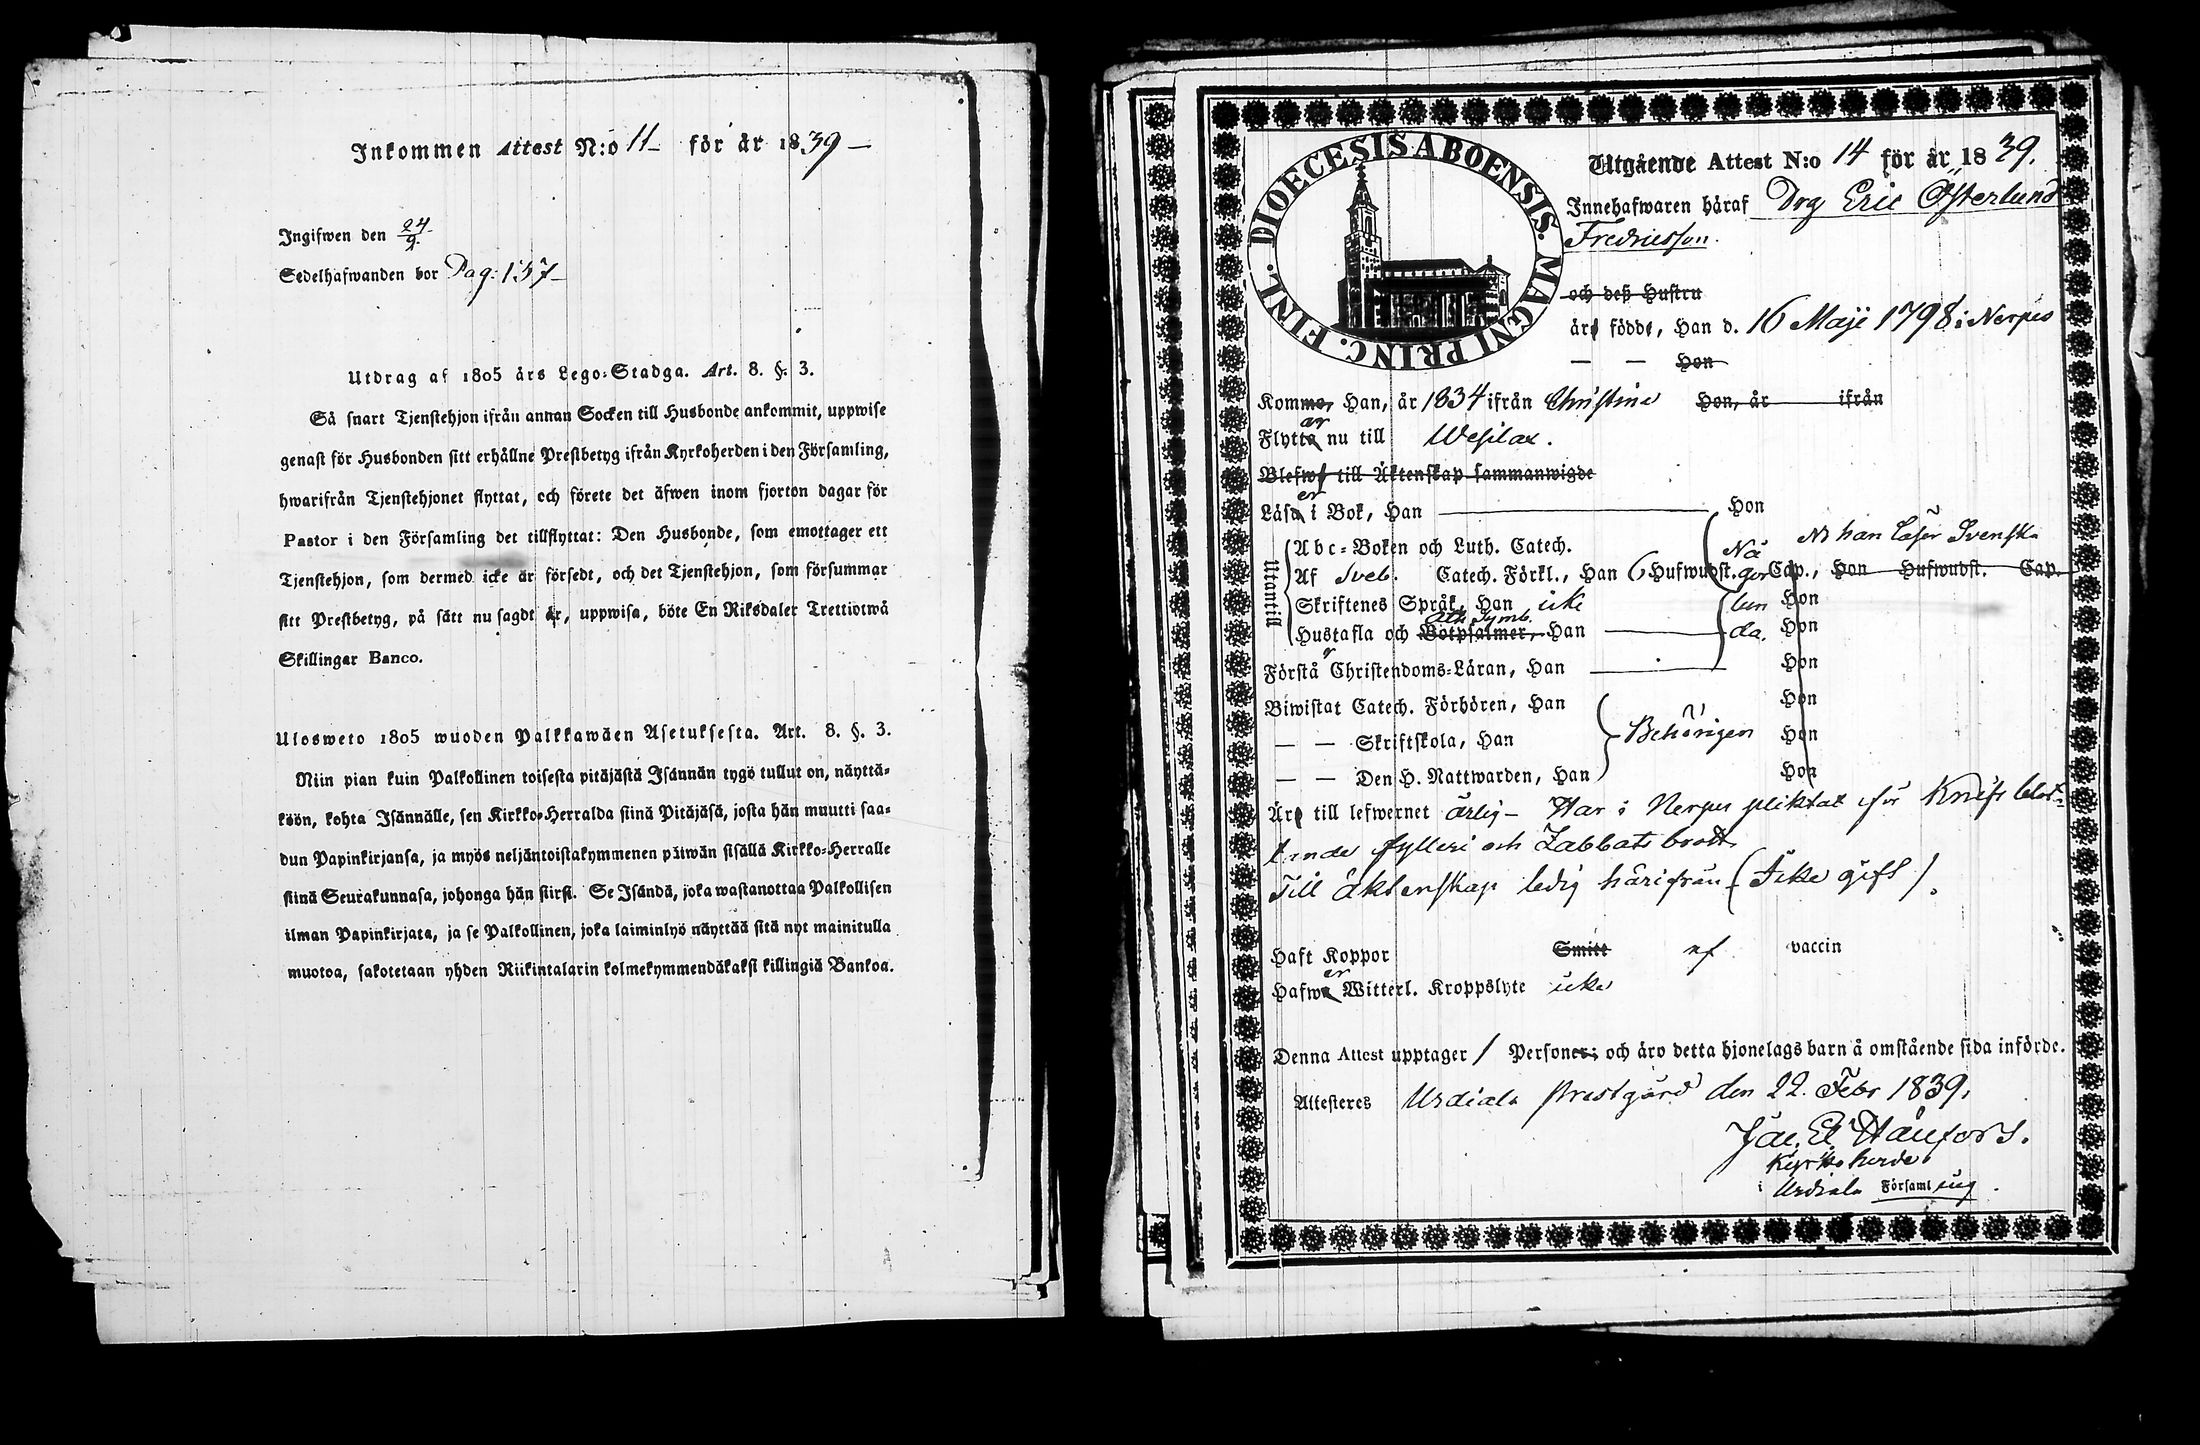 Inkommen Attest N:o 11 för år 1839
Ingifwen den 24/9
Sedelhafwanden bor Pag: 137
Utdrag af 1805 års Lego-Stadga. Art. 8. §. 3.
Så snart Tjenstehjon ifrån annan Socken till Husbonde ankommit, uppwise
genast för Husbonden sitt erhållne Prestbetyg ifrån Kyrkoherden i den Församling,
hwarifrån Tjenstehjonet flyttat, och förete det äfwen inom fjorton dagar för
Pastor i den Församling det tillflyttat: Den Husbonde, som emottager ett
Tjenstehjon, som dermed icke är försedt, och det Tjenstehjon, som försummar
sitt Prestbetyg, på sätt nu sagdt är, uppwisa, böte En Riksdaler Trettiotwå
Skillingar Banco.
Ulosweto 1805 wuoden Palkkawäen Asetuksesta. Art. 8. §. 3.
Niin pian kuin Palkollinen toisesta pitäjästä Isännän tygö tullut on, näyttä-
köön, kohta Isännälle, sen Kirkko-Herralda siinä Pitäjäsä, josta hän muutti saa-
dun Papinkirjansa, ja myös neljäntoistakymmenen päiwän sisällä Kirkko-Herralle
siinä Seurakunnasa, johonga hän siirsi. Se Isändä, joka wastanottaa Palkollisen
ilman Papinkirjata, ja se Palkollinen, joka laiminlyö näyttää sitä nyt mainitulla
muotoa, sakotetaan yhden Riikintalarin kolmekymmendäkaksi killingiä Bankoa.
DIOECESIS ABOENSIS. MAGNI PRINC. FINL.
Utgående Attest N:o 14 för år 1839.
Innehafwaren häraf Drg Eric Österlund
Fredricsson.
och deß Hustru
äro födde, Han d. 16 Maji 1798 i Nerpes
— — Hon
Komma, Han, år 1834 ifrån Christina Hon, år ifrån
Flyttar nu till Wesilax.
Blefwo till Äktenskap sammanwigde
Läser i Bok, Han Hon
Utantill
Abc-Boken och Luth. Catech. Nö han läser Svenska
Af Sveb. Catech. Förkl., Han 6 Hufwudst. Cap., Hon Hufwudst. Cap.
Skriftenes Språk, Han icke Hon
Hustafla och Botpsalmer, Ath. Symb. Han Hon
Förstår Christendoms-Läran, Han Hon
Biwistat Catech. Förhören, Han Hon
— — Skriftskola, Han Behörigen Hon
— — Den H. Nattwarden, Han Hon
Äro till lefwernet ärlig — Har i Nerpes pliktat för Knifs blot-
tande fylleri och Sabbats brott
Till äktenskap ledig härifrån (Icke gift).
Haft Koppor Smitt af vaccin
Hafwer Witterl. Kroppslyte icke
Denna Attest upptager 1 Personer; och äro detta hjonelags barn å omstående sida införde.
Attesteres Urdiala Prestgård den 22. Febr 1839.
Kyrkoherde
i Urdiala Församling